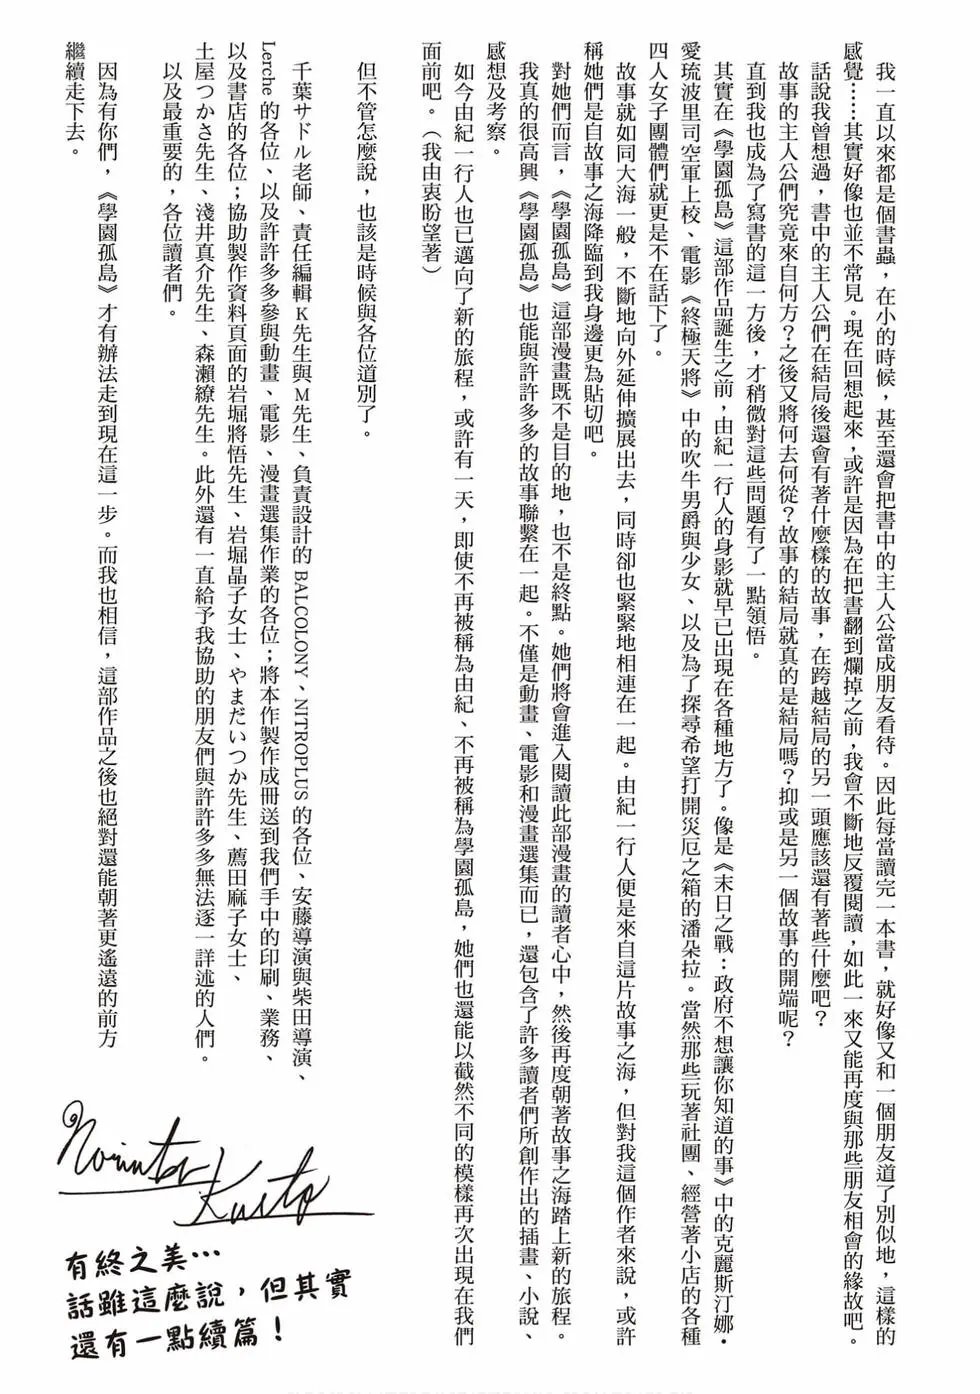 我一直以來都是個書蟲，在小的時候，甚至還會把書中的主人公當成朋友看待。因此每當讀完一本書，就好像又和一個朋友道了別似地，這樣的
感覺……其實好像也並不常見。現在回想起來，或許是因為在把書翻到爛掉之前，我會不斷地反覆閱讀，如此一來又能再度與那些朋友相會的緣故吧。
話說我曾想過，書中的主人公們在結局後還會有著什麼樣的故事，在跨越結局的另一頭應該還有著些什麼吧？
故事的主人公們究竟來自何方？之後又將何去何從？故事的結局就真的是結局嗎？抑或是另一個故事的開端呢？
直到我也成為了寫書的這一方後，才稍微對這些問題有了一點領悟。
其實在《學園孤島》這部作品誕生之前，由紀一行人的身影就早已出現在各種地方了。像是《末日之戰：政府不想讓你知道的事》中的克麗斯汀娜·
愛琉波里司空軍上校、電影《終極天將》中的吹牛男爵與少女、以及為了探尋希望打開災厄之箱的潘朵拉。當然那些玩著社團、經營著小店的各種
四人女子團體們就更是不在話下了。
故事就如同大海一般，不斷地向外延伸擴展出去，同時卻也緊緊地相連在一起。由紀一行人便是來自這片故事之海，但對我這個作者來說，或許
稱她們是自故事之海降臨到我身邊更為貼切吧。
對她們而言，《學園孤島》這部漫畫既不是目的地，也不是終點。她們將會進入閱讀此部漫畫的讀者心中，然後再度朝著故事之海踏上新的旅程。
我真的很高興《學園孤島》也能與許許多多的故事聯繫在一起。不僅是動畫、電影和漫畫選集而已，還包含了許多讀者們所創作出的插畫、小說、
感想及考察。
如今由紀一行人也已邁向了新的旅程，或許有一天，即使不再被稱為由紀、不再被稱為學園孤島，她們也還能以截然不同的模樣再次出現在我們
面前吧。（我由衷盼望著）
但不管怎麼說，也該是時候與各位道別了。
千葉サドル老師、責任編輯K先生與M先生、負責設計的BALCOLONY、NITROPLUS的各位、安藤導演與柴田導演、
Lerche的各位、以及許許多多參與動畫、電影、漫畫選集作業的各位；將本作製作成冊送到我們手中的印刷、業務、
以及書店的各位；協助製作資料頁面的岩堀將悟先生、岩堀晶子女士、やまだいつか先生、薦田麻子女士、
土屋つかさ先生、淺井真介先生、森瀨繚先生。此外還有一直給予我協助的朋友們與許許多多無法逐一詳述的人們。
以及最重要的，各位讀者們。
因為有你們，《學園孤島》才有辦法走到現在這一步。而我也相信，這部作品之後也絕對還能朝著更遙遠的前方
繼續走下去。
有終之美⋯
話雖這麼說，但其實
還有一點續篇！